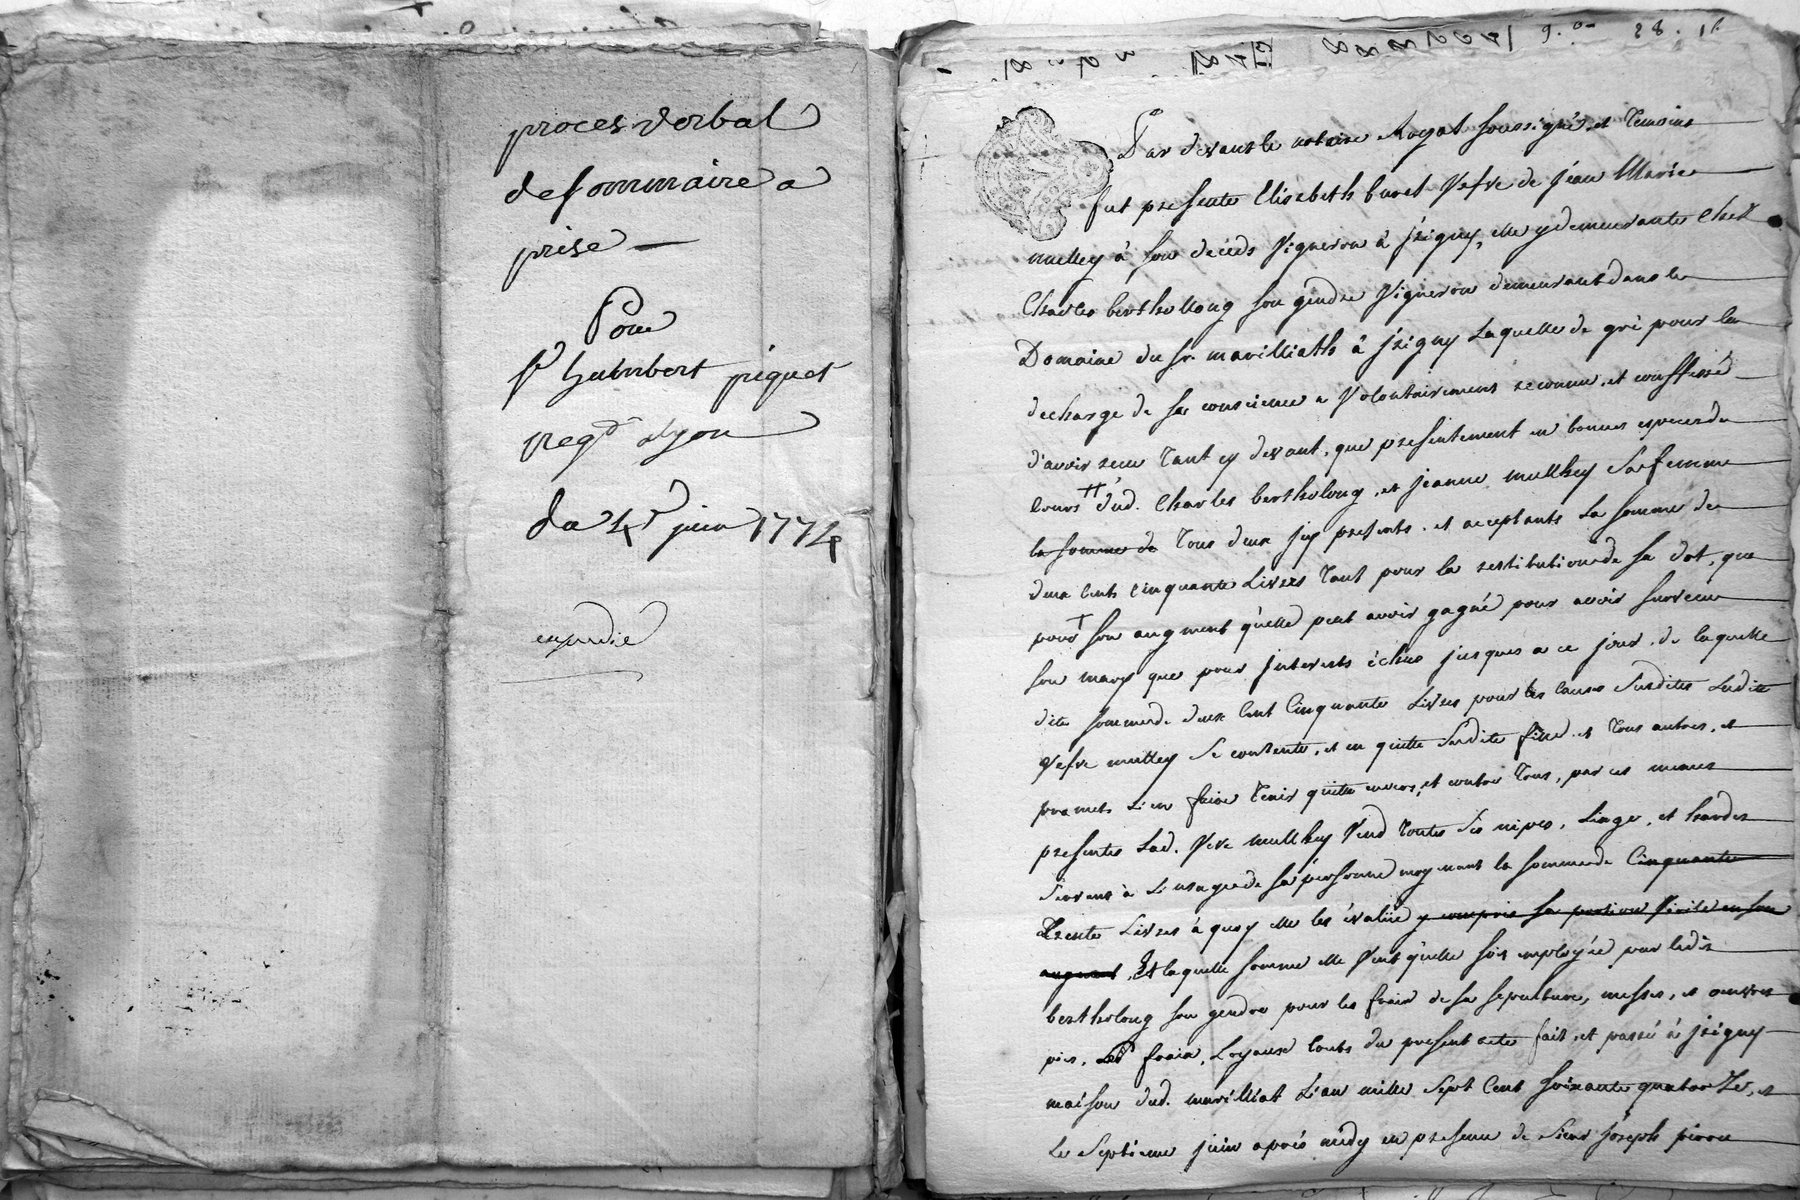 proces verbal
de sommaire a
prise
Pour
sr humbert piquet
negt a lyon
du 4e juin 1774
expedié
Par devant le notaire Royal soussigné, et temoins
fut presente Elizabeth buret vefve de jean Marie
mulley à son décéds vigneron à jrigny, elle y demeurante chez
Charles berthollong son gendre vigneron demeurant dans le
Domaine du sr. marilliath à jrigny Laquelle de gré pour la
decharge de sa conscience a volontairement reconnu, et confessé
d'avoir receu tant cy devant, que presentement en bonnes especes du
cours dud. Charles bertholong, et jeanne mulley sa femme
la somme de tous deux jcy presents, et acceptants La somme de
deux cents cinquante Livres tant pour la restitution de sa dot, que
pour son augment qu'elle peut avoir gagné pour avoir survecu
son mary que pour jnterests échus jusques a ce jour, de laquelle
dite somme de deux Cent Cinquante Livres pour les causes susdites Ladite
vefve mulley se contente, et en quitte susdite fille et tous autres, et
promet L'en faire tenir quitte envers, et contre tous, par ces memes
presentes Lad. veve mulley vend toutes ses nipes, Linge, et hardes
servant à L'usage de sa personne moyenant la somme de Cinquante
trente Livres à quoy elle les évalüe y compris sa portion virile en son
augment, Et laquelle somme elle veut qu'elle soit employée par ledit
bertholong son gendre pour les frais de sa sepulture, messes, et oeuvres
pies, Les frais, Loyaux couts du present acte fait, et passé à jrigny
maison dud. marilliat L'an mille sept Cent soixante quatorze, et
Le septieme juin après midy en presence de sieur joseph piron